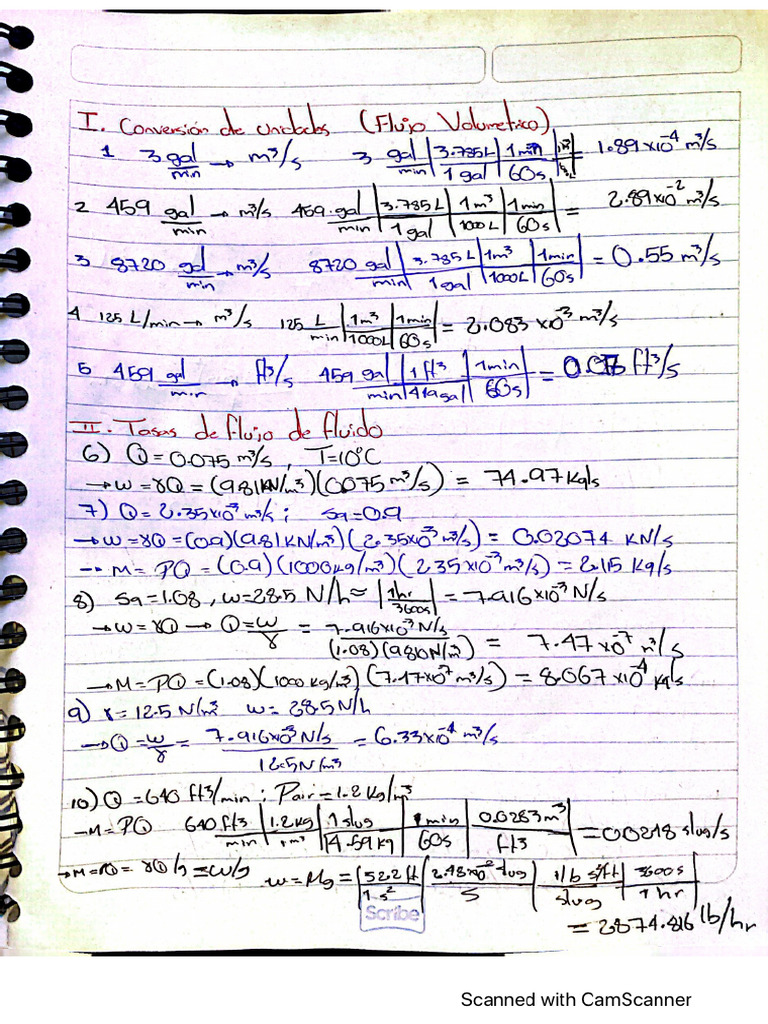 I. Conversión de unidades (Flujo Volumetrico)
1 3 gal/min → m³/s 3 gal/min | 3.785L/1 gal | 1min/60s | = 1.89x10⁻⁴ m³/s
2 459 gal/min → m³/s 459 gal/min | 3.785L/1 gal | 1m³/1000L | 1min/60s = 2.89x10⁻² m³/s
3 8720 gal/min → m³/s 8720 gal/min | 3.785L/1 gal | 1m³/1000L | 1min/60s = 0.55 m³/s
4 125 L/min → m³/s 125 L/min | 1m³/1000L | 1min/60s = 2.083 x10⁻³ m³/s
5 459 gal/min → ft³/s 459 gal/min | 1 ft³/449gal | 1min/60s = ft³/s
II. Tasas de flujo de fluido
6) Q = 0.075 m³/s, T=10°C
→ w = γQ = (9.81KN/m³)(0.075 m³/s) = 74.97 Kg/s
7) Q = 2.35x10⁻³ m³/s; Sg=0.9
→ w = γQ = (0.9)(9.81 KN/m³)(2.35x10⁻³ m³/s) = 0.02074 KN/s
→ M = PQ = (0.9)(1000kg/m³)(2.35x10⁻³ m³/s) = 2.115 Kg/s
8) Sg=1.08, w=28.5 N/h ≈ | 1hr/3600s | = 7.916x10⁻³ N/s
→ w = γQ → Q = w/γ = 7.916x10⁻³ N/s / (1.08)(9810N/m³) = 7.47x10⁻⁷ m³/s
→ M = PQ = (1.08)(1000 Kg/m³)(7.47x10⁻⁷ m³/s) = 8.067 x10⁻⁴ Kg/s
9) γ = 12.5 N/m³ w = 28.5N/h
→ Q = w/γ = 7.916x10⁻³ N/s / 12.5N/m³ = 6.33x10⁻⁴ m³/s
10) Q = 640 ft³/min; Pair = 1.2 Kg/m³
→ M = PQ 640 ft³/min | 1.2kg/m³ | 1 slug/14.59 kg | 1min/60s | 0.0283m³/ft³ = 0.0248 slug/s
→ M = PQ = γQ/g = w/g w = Mg = | 32.2 ft/1 s² | 2.48x10⁻² slug/s | 1lb s²/ft/slug | 3600s/1 hr |
= 2874.816 lb/hr
Scribe
Scanned with CamScanner